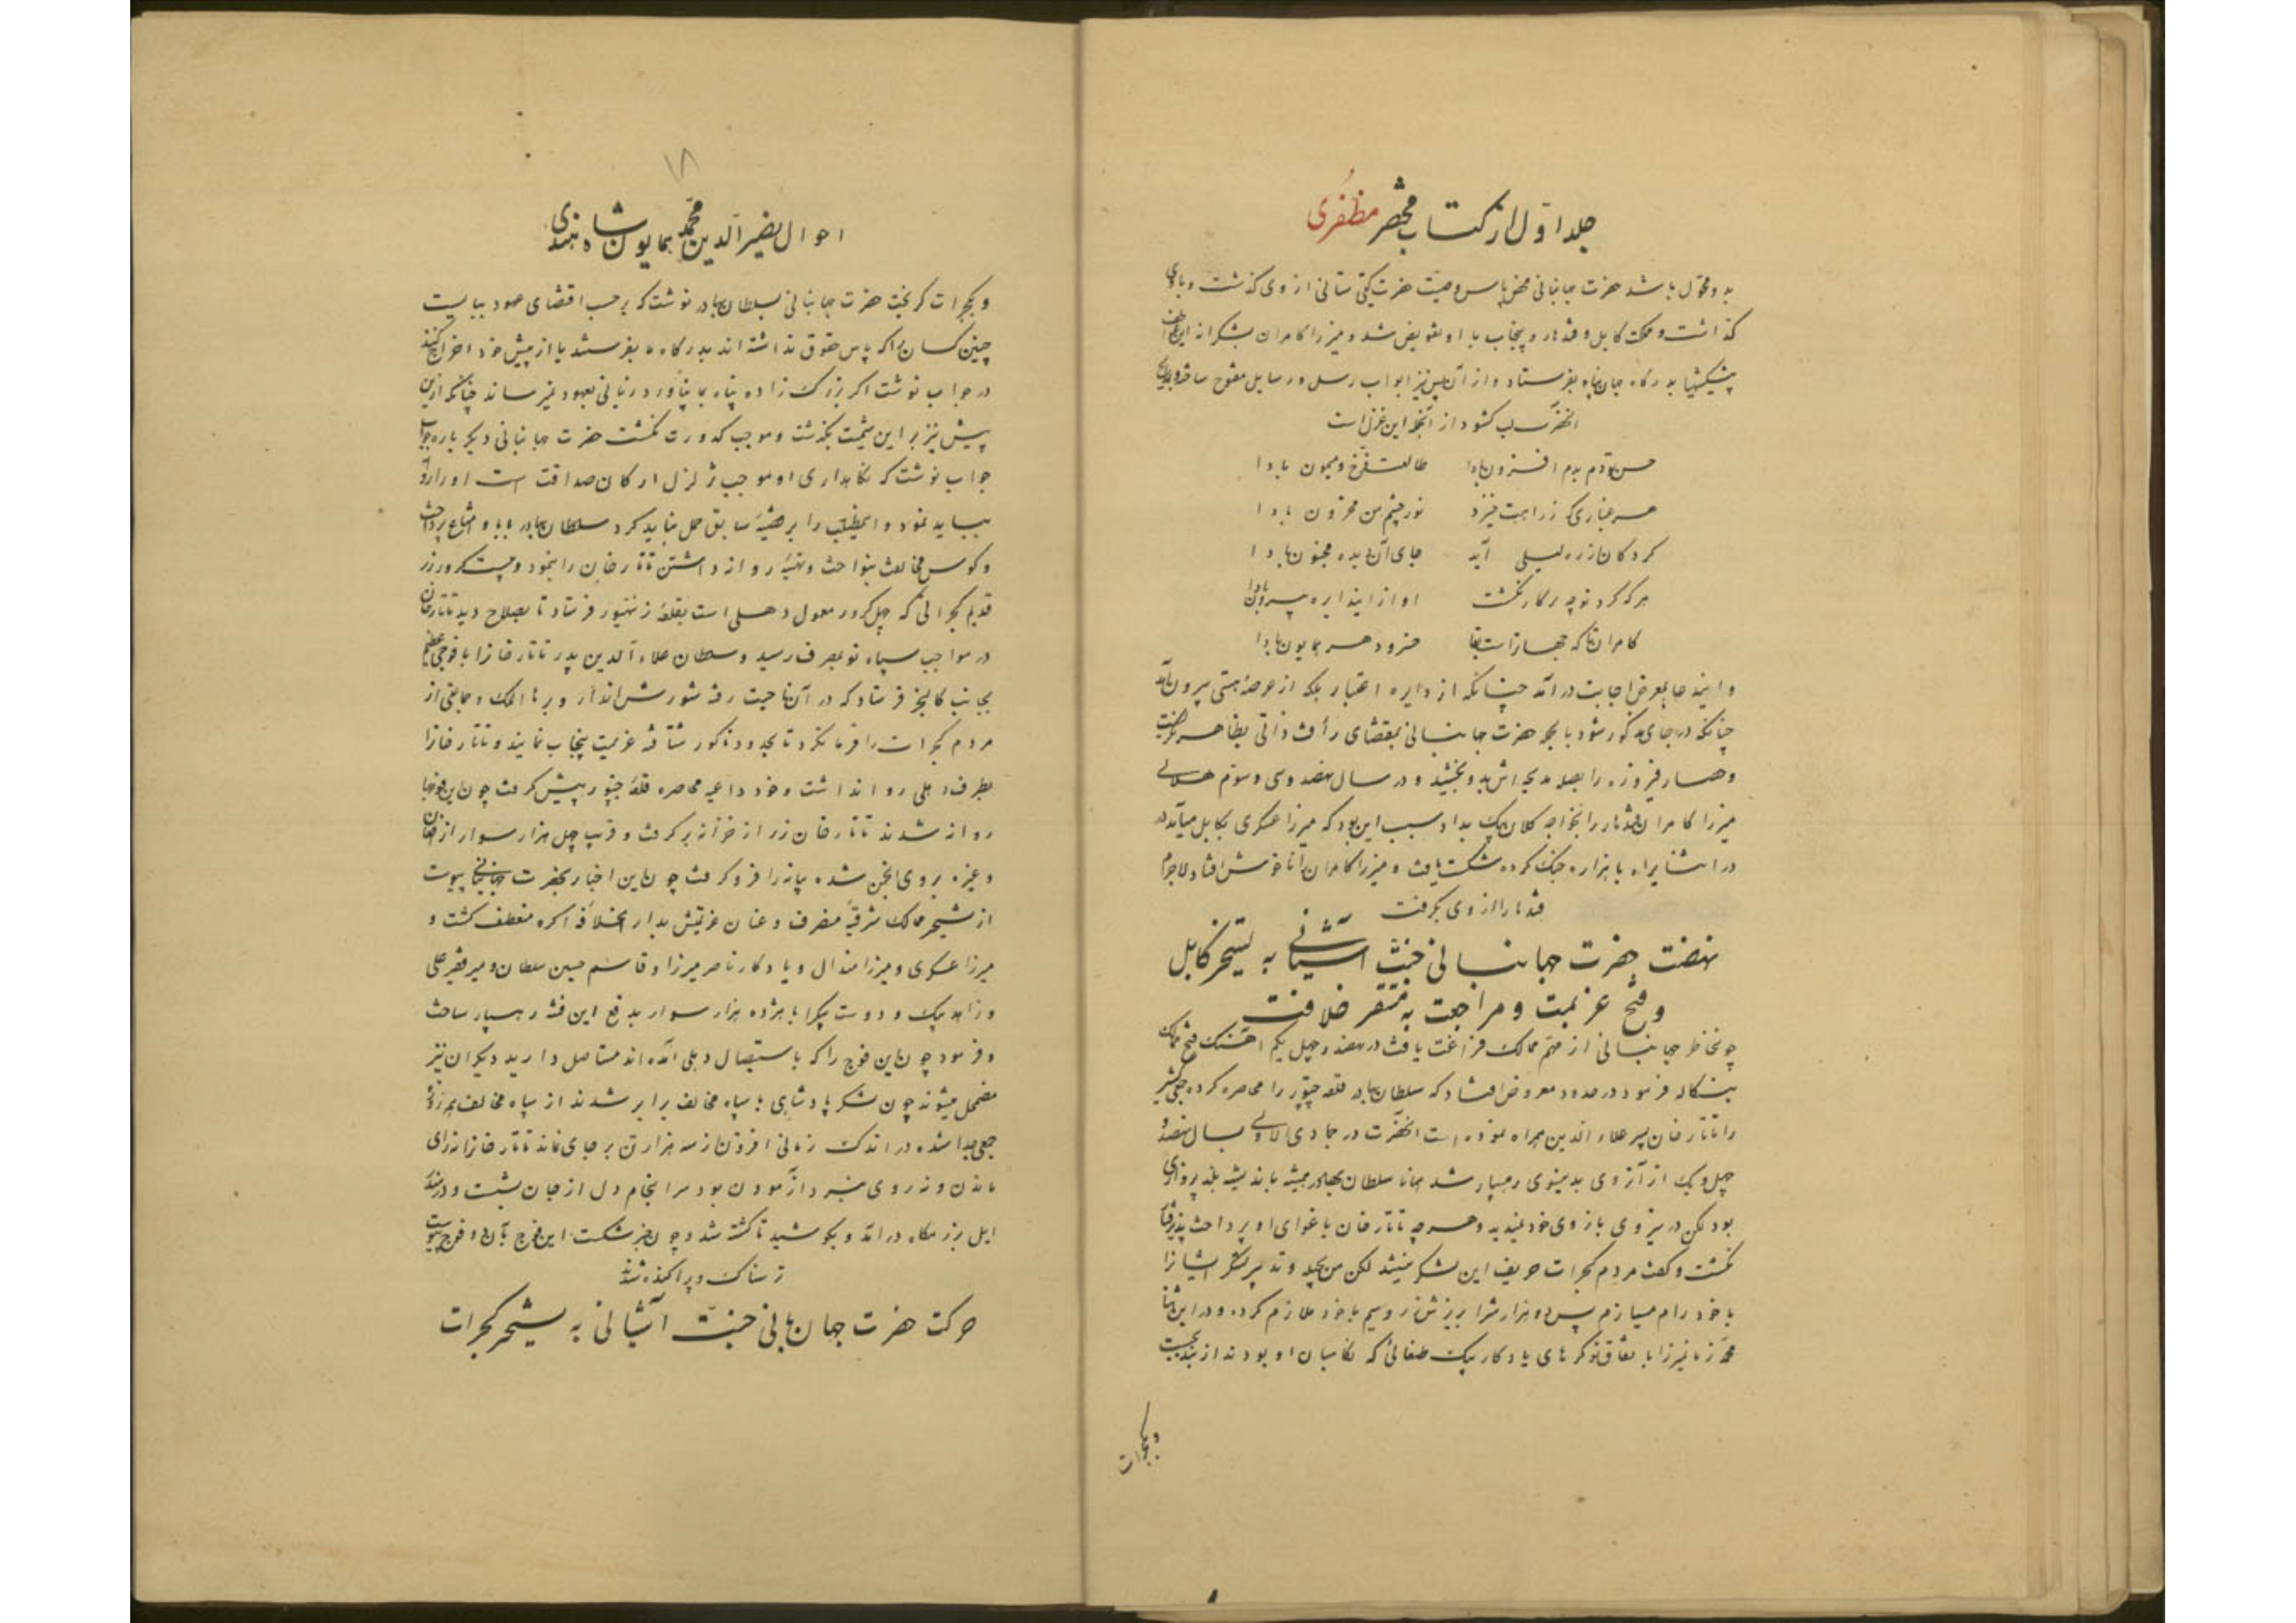 جلد اوّل از کتاب محضر مظفری
بدو محوّل باشد حضرت جهانبانی محض پاس وصیّت حضرت گیتی ستانی از وی گذشت و باوی
گذاشت و مملکت کابل و قندهار و پنجاب با او تفویض شد و میرزا کامران بشکرانه این
پیشکشها بدرگاه جهان پناه بفرستاد و از آن پس نیز ابواب رسل و رسایل مفتوح ساخت و بمدایح
آنحضرت لب کشود از آنجمله این غزل است
حسن تو دم بدم افزون بادا طالعت فرّخ و میمون بادا
هر غباری که ز راهت خیزد نور چشم من محزون بادا
گرد کان از ره لیلی آید جای آن دیده مجنون بادا
هر که گرد تو چه پرگار نگشت او از این دایره بیرون بادا
کامران تا که جهانراست بقا خسرو دهر همایون بادا
و اینده عا بمعرض اجابت درآمد چنانکه از دایره اعتبار بلکه از عرصه هستی بیرون آمد
چنانکه در جای مذکور شود بالجمله حضرت جهانبانی بمقتضای رأفت ذاتی بظاهر
و حصار فیروزه را بصله مدیحه اش بدو بخشید و در سال نهصد و سی و سوّم هلالی
میرزا کامران قندهار را بخواجه کلان بیک بداد سبب این بود که میرزا عسکری بکابل میآمد در
در اثنا براه با هزاره جنک کرده شکست یافت و میرزا کامران را ناخوش افتاد لاجرم
قندهار را از وی بگرفت
نهضت حضرت جهانبانی جنّت آشیانی به تسخیر کابل
و فسخ عزیمت و مراجعت به مستقر خلافت
چون خاطر جهانبانی از مهمّ ممالک فراغت یافت در نهصد و چهل یکم آهنگ فتح ممالک
بنگاله فرمود در حدود معروض افتاد که سلطان بهادر قلعه چتور را محاصره کرده جمعی کثیر
را تاتار خان پسر علاء الدین همراه نموده است آنحضرت در جمادی الاولی بسال نهصد و
چهل و یک از آزوی بدینسوی رهسپار شد همانا سلطان بهادر همیشه باندیشه بلند پروازی
بود لکن در نیروی بازوی خود نمیدید و هر چه تاتار خان باغوای او پرداخت پذیرفتار
نگشت و گفت مردم گجرات حریف این لشکر نیستند لکن من بحیله و تدبیر لشکر ایشانرا
با خود رام میسازم پس ده هزار نفر را بریزش زر و سیم با خود ملازم کرده و در این اثنا
محمّد زمان میرزا با تفاق نوکرهای یادگار بیک طغائی که نگاهبان او بودند از بند بجست
و بگجرات
۱۸
احوال نصیر الدین محمّد همایون شاه هندی
و بگجرات گریخت حضرت جهانبانی بسلطان بهادر نوشت که بر حسب اقتضای عهود ببایست
چنین کسان را که پاس حقوق نداشته اند بدرگاه ما بفرستند یا از پیش خود اخراج کنند
در جواب نوشت اگر بزرگ زاده پناه بما بیاورد زیانی بعهود نمیرساند چنانکه ازین
پیش نیز بر این شیمت بگذشت و موجب کدورت نگشت حضرت جهانبانی دیگر باره جواب
جواب نوشت که نگاهداری او موجب تزلزل ارکان صداقت است او را روانه
بباید نمود و اینمطلب را بر قضیّه سابق حمل نباید کرد سلطان بهادر به ابا و امتناع پرداخت
و کوس مخالفت بنواخت و تهیّه روانه داشتن تاتار خان را بنمود و بیست کرور زر
قدیم گجراتی که چهل کرور معمول دهلی است بقلعه رنتنبور فرستاد تا بصلاح دید تاتار خان
در مواجب سپاه نو بصرف رسید و سلطان علاء الدین پدر تاتار خانرا با فوجی عظیم
بجانب کالنجر فرستاد که در آن ناحیت رفته شورش اندازد و برهان الملک و جماعتی از
مردم گجرات را فرمان کرد تا بحدود ناگور شتافته عزیمت پنجاب نمایند و تاتار خانرا
بطرف دهلی روانه داشت و خود داعیه محاصره قلعه چیتور پیش گرفت چون این فوجها
روانه شدند تاتار خان زر از خزانه برگرفت و قریب چهل هزار سوار از افغان
و غیره بروی انجمن شده بیانه را فرو گرفت چون این اخبار بحضرت جهانبانی پیوست
از تسخیر ممالک شرقیّه منصرف و عنان عزیمتش بدار الخلافه اگره منعطف گشت و
میرزا عسکری و میرزا هندال و یادگار ناصر میرزا و قاسم حسین سلطان و میر فقیر علی
و زاهد بیک و دوست بیک را با هژده هزار سوار بدفع این فتنه رهسپار ساخت
و فرمود چون این فوج را که باستیصال دهلی آمده اند مستأصل دارید دیگران نیز
مضمحل میشوند چون لشکر پادشاهی با سپاه مخالف برابر شدند از سپاه مخالف هر روز
جمعی جدا شده در اندک زمانی افزون از سه هزار تن بر جای نماند تاتار خانرا نه رای
ماندن و نه روی نبرد آزمودن بود سرانجام دل از جان بشست و در مندرا
ایل برزمگاه درآمد و بکوشید تا کشته شد و چون خبر شکست این فوج بآن دو فوج پیوست
ترسناک و پراکنده شدند
حرکت حضرت جهان بانی جنّت آشیانی به تسخیر گجرات